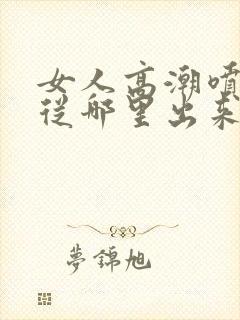 女人高潮喷
从哪里出来
夢錦旭